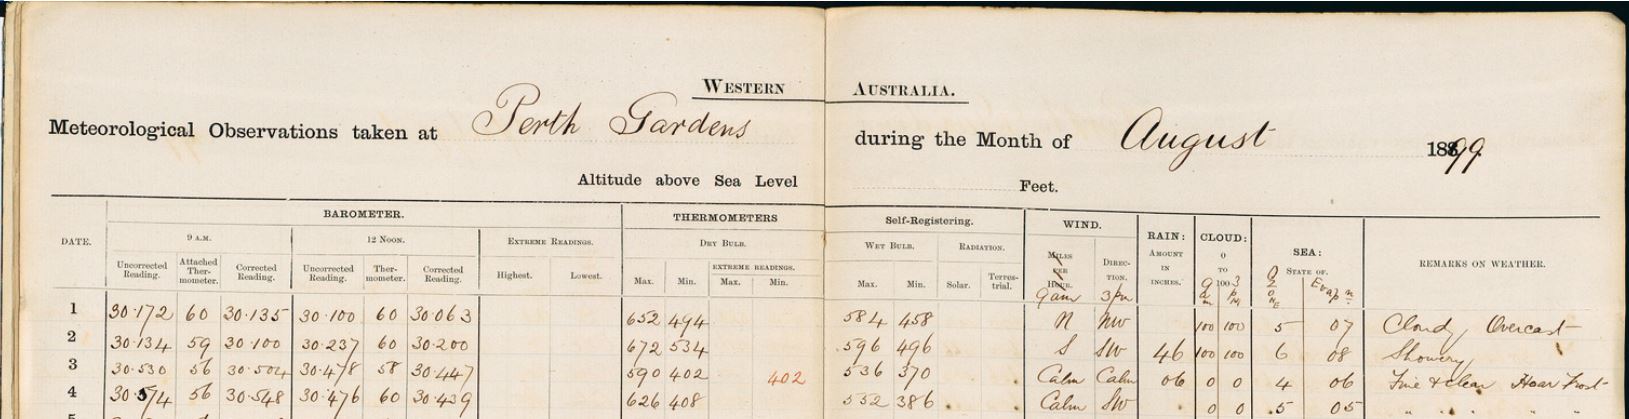 WESTERN AUSTRALIA.
Meteorological Observations taken at Perth Gardens during the Month of August 1899
Altitude above Sea Level Feet.
DATE. BAROMETER. THERMOMETERS Self-Registering. WIND. RAIN: CLOUD: SEA: REMARKS ON WEATHER.
9 A.M. 12 NOON. EXTREME READINGS. DRY BULB. WET BULB. RADIATION. MILES PER HOUR. DIRECTION. AMOUNT IN INCHES. 0 TO 100 STATE OF.
Uncorrected Reading. Attached Thermometer. Corrected Reading. Uncorrected Reading. Thermometer. Corrected Reading. Highest. Lowest. Max. Min. EXTREME READINGS. Max. Min. Max. Min. Solar. Terrestrial. 9 am 3 pm 9 am 3 PM Ozone Evapn
1 30·172 60 30·135 30·100 60 30·063 652 494 584 458 N NW 100 100 5 07 Cloudy, Overcast
2 30·134 59 30·100 30·237 60 30·200 672 534 596 496 S SW 46 100 100 6 08 Showery
3 30·530 56 30·504 30·478 58 30·447 590 402 402 536 370 Calm Calm 06 0 0 4 06 Fine & clear Hoar Frost
4 30·574 56 30·548 30·476 60 30·439 626 408 552 386 Calm SW 0 0 5 05 " " " "